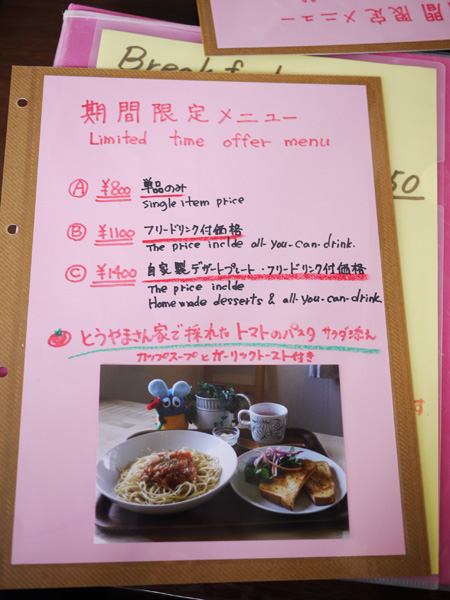 期間限定メニュー
Limited time offer menu
Ⓐ ¥800 単品のみ
Single item price
Ⓑ ¥1100 フリードリンク付価格
The price inclde all-you-can-drink.
Ⓒ ¥1400 自家製デザートプレート・フリードリンク付価格
The price inclde
Homemade desserts & all-you-can-drink
とうやまさん家で採れたトマトのパスタ サラダ添え
カップスープとガーリックトースト付き
50
す